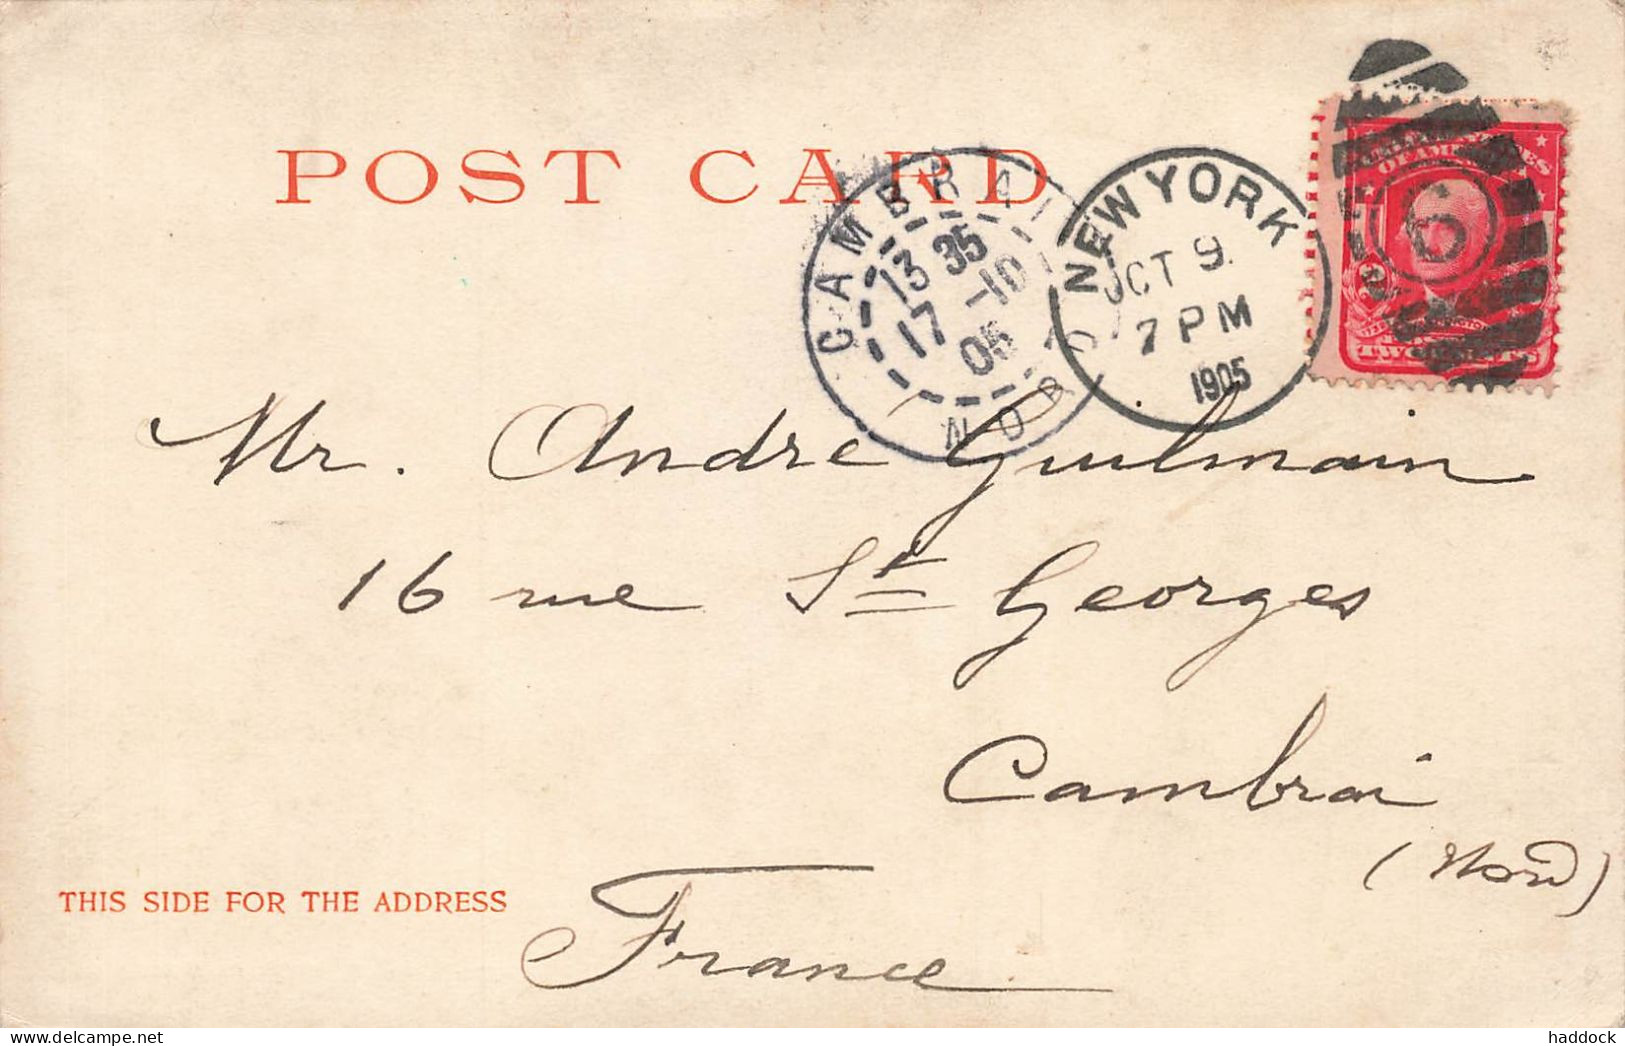 POST CARD
CAMBRAI
13 35
17 -10
05
NORD
NEW YORK
OCT 9
7 PM
1905
6
TWO CENTS
Mr. Andre Guilmain
16 rue St Georges
Cambrai
(Nord)
THIS SIDE FOR THE ADDRESS
France
haddock